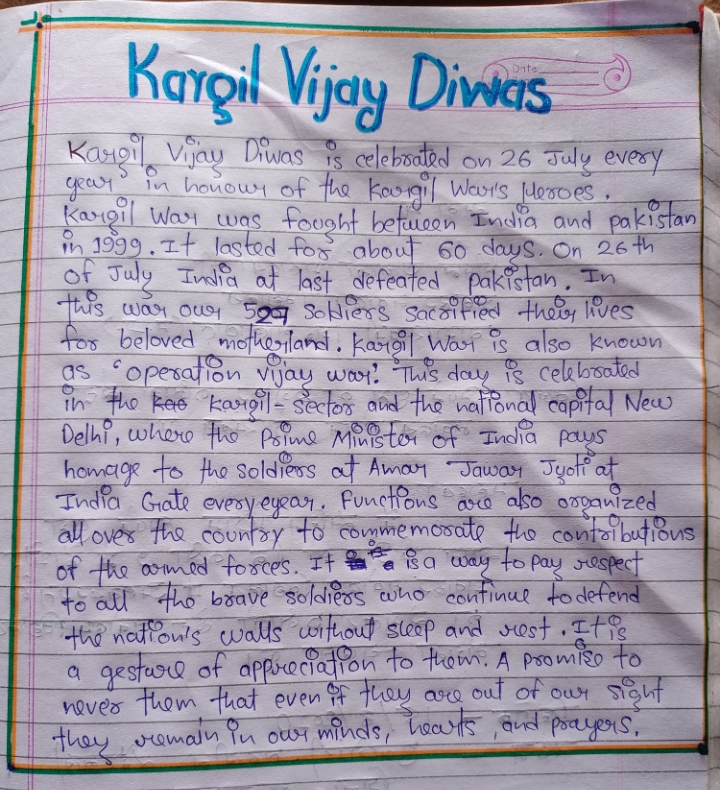 Kargil Vijay Diwas
Date
Kargil Vijay Diwas is celebrated on 26 July every
year in honour of the Kargil War's Heroes.
Kargil War was fought between India and pakistan
in 1999. It lasted for about 60 days. On 26th
of July India at last defeated pakistan. In
this war our 527 Soldiers sacrified their lives
for beloved motherland. Kargil War is also known
as "operation vijay war". This day is celebrated
in the Kargil-sector and the national capital New
Delhi, where the Prime Minister of India pays
homage to the soldiers at Amar Jawar Jyoti at
India Gate everyeyear. Functions are also organized
all over the country to commemorate the contributions
of the armed forces. It is a way to pay respect
to all the brave soldiers who continue to defend
the nation's walls without sleep and rest. It is
a gesture of appreciation to them. A promise to
never them that even if they are out of our sight
they remain in our minds, hearts, and prayers.